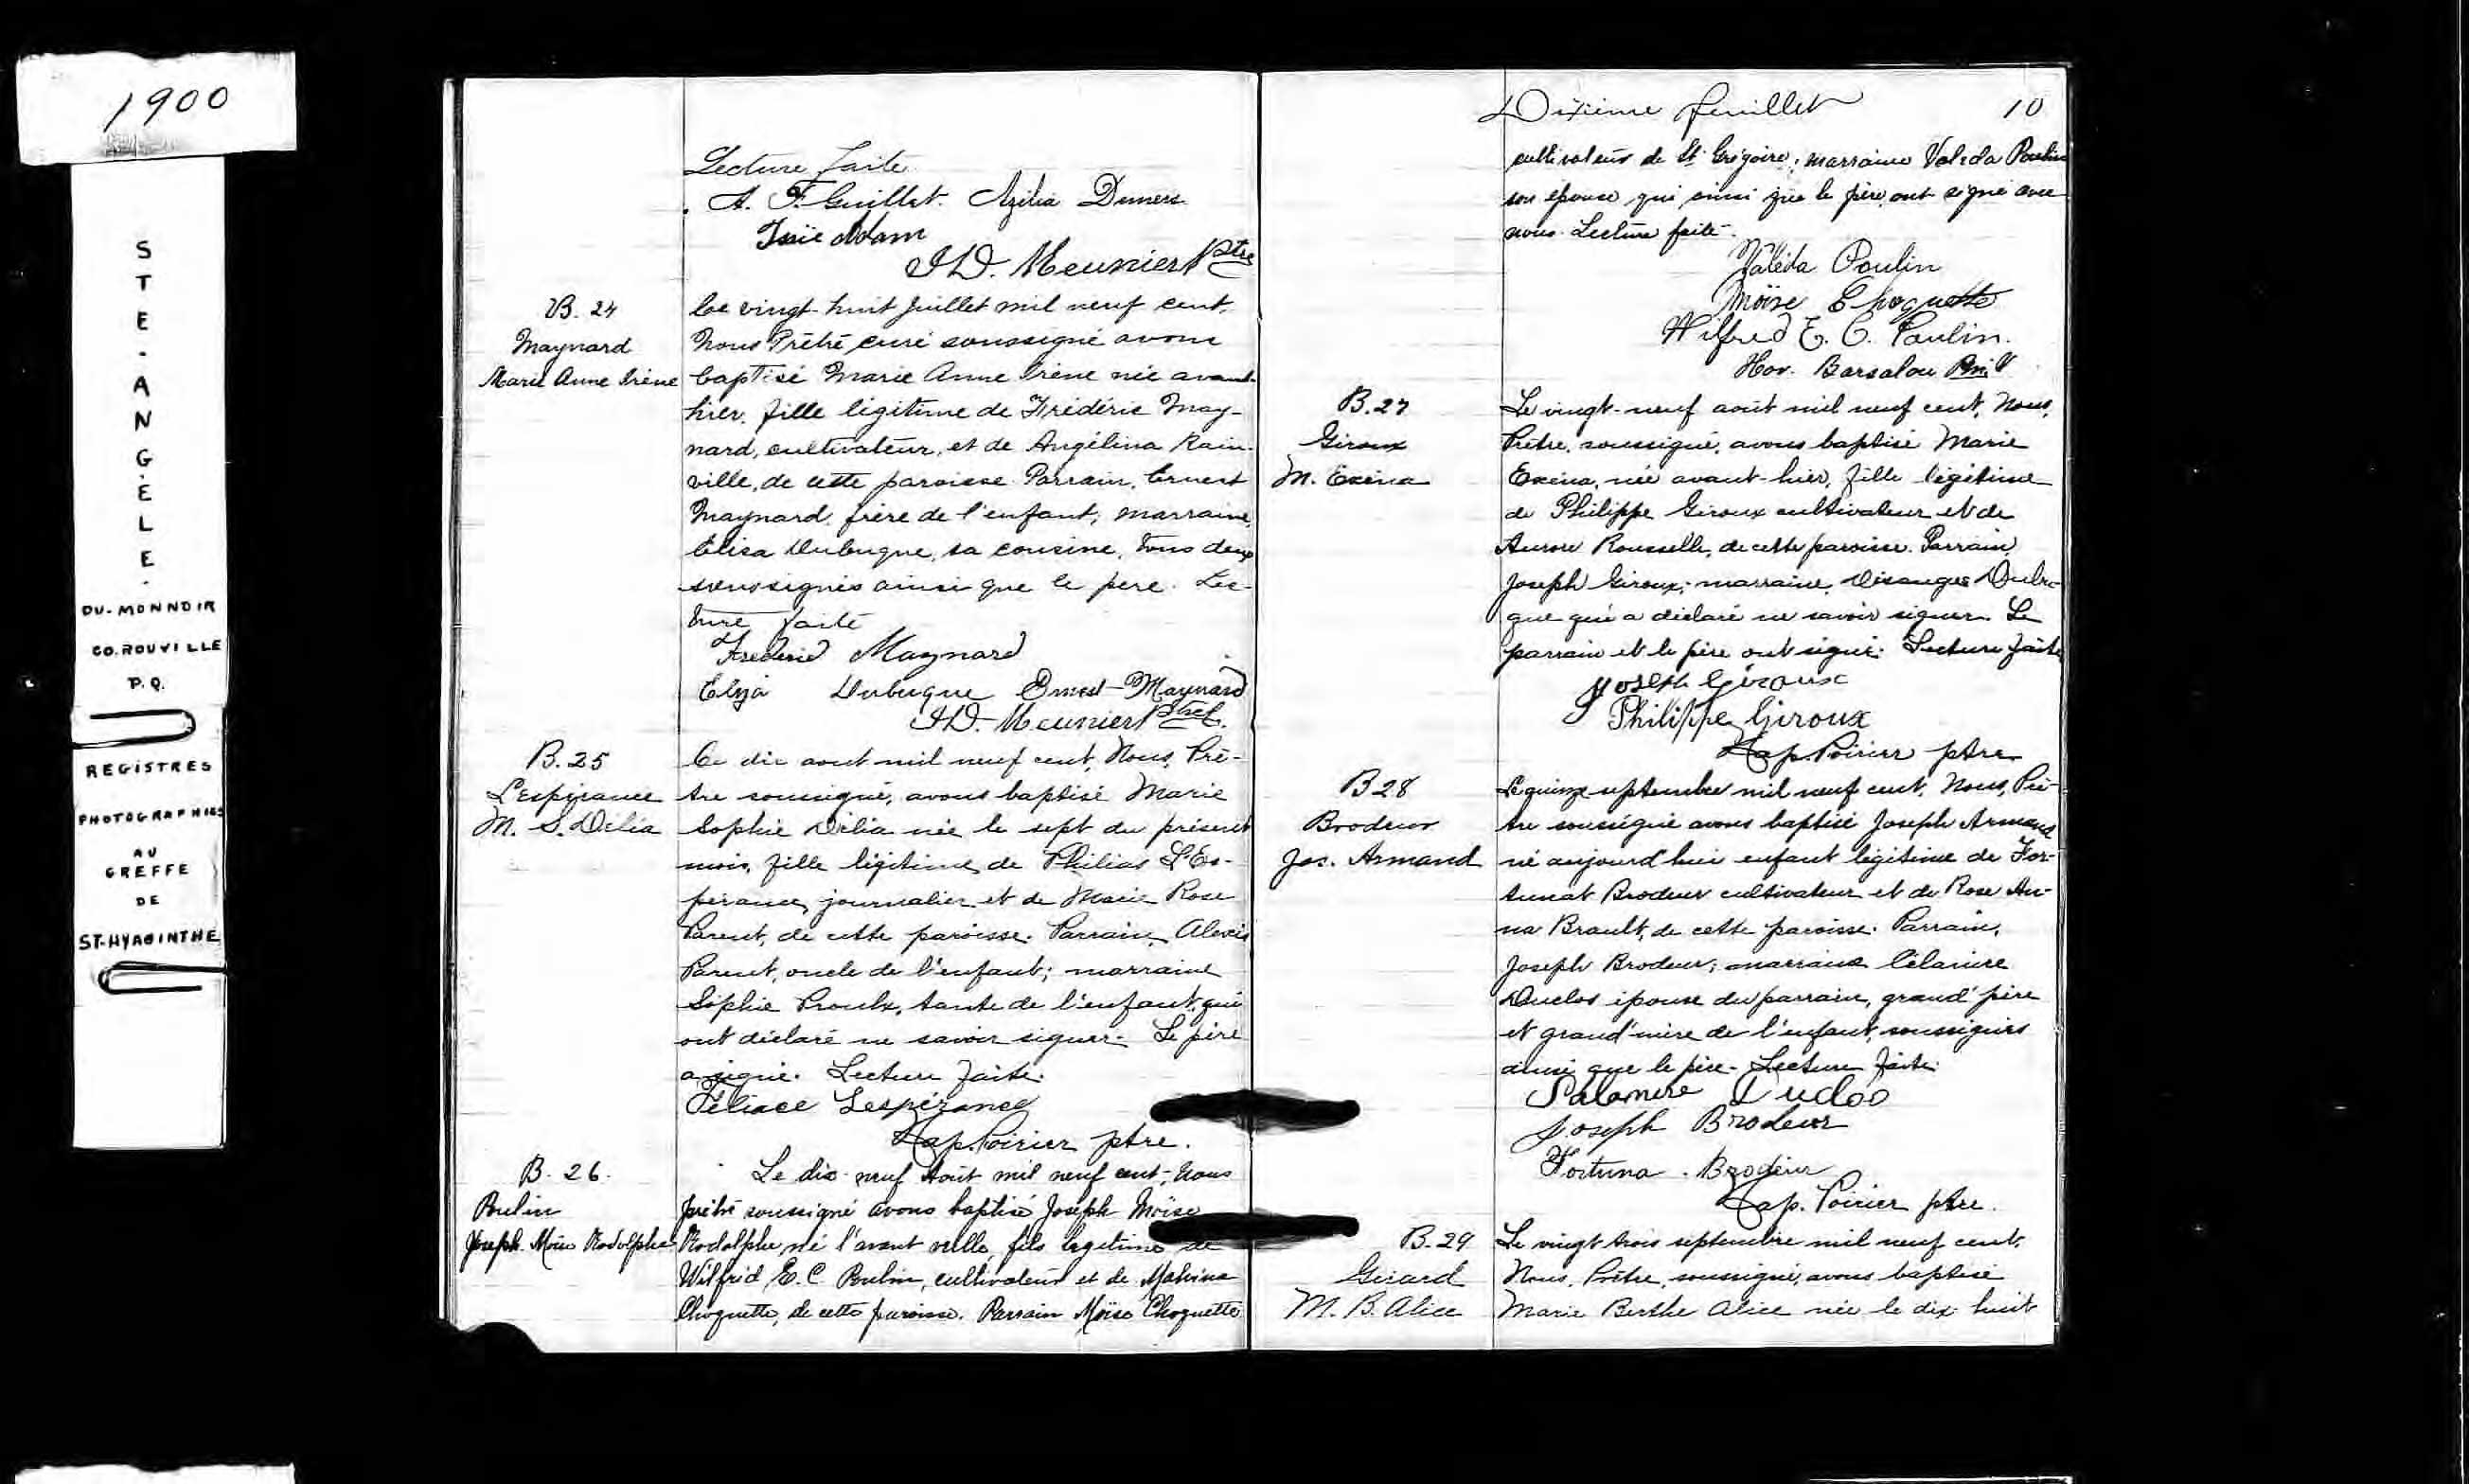 1900
STE-ANGÈLE.
DU-MONNOIR
CO.ROUVILLE
P.Q.
REGISTRES
PHOTOGRAPHIES
AU
GREFFE
DE
ST-HYACINTHE
Lecture faite
A. F. Guillet. Azilia Demers
Adam
J.D. Meunier Ptre
B. 24
Maynard
Marie Anne Irène
Le vingt-huit Juillet mil neuf cent,
Nous Prêtre curé soussigné avons
baptisé Marie Anne Irène née avant-
hier, fille légitime de Frédéric May-
nard, cultivateur, et de Angélina Rain-
ville, de cette paroisse. Parrain, Ernest
Maynard, frère de l'enfant; marraine,
Eliza Dubuque, sa cousine, tous deux
soussignés ainsi que le père. Lec-
ture faite
Frederic Maynard
Eliza Dubuque Ernest Maynard
J.D. Meunier Ptre
B. 25
L'Espérance
M. S. Délia
Le dix aout mil neuf cent, Nous, Prê-
tre soussigné, avons baptisé Marie
Sophie Délia née le sept du présent
mois, fille légitime de Philias L'Es-
pérance, journalier et de Marie Rose
Parent, de cette paroisse. Parrain, Alexis
Parent, oncle de l'enfant; marraine
Sophie Proulx, tante de l'enfant, qui
ont déclaré ne savoir signer. Le père
a signé. Lecture faite.
Féliace Lespérance
Nap. Poirier ptre.
B. 26.
Poulin
Joseph Moïse Rodolphe
Le dix-neuf Août mil neuf cent, Nous
prêtre soussigné avons baptisé Joseph Moïse
Rodolphe, né l'avant veille, fils légitime de
Wilfrid E. C. Poulin, cultivateur et de Malvina
Choquette, de cette paroisse. Parrain Moïse Choquette
Dixième feuillet 10
cultivateur de St Grégoire; marraine Valéda Poulin
son épouse qui ainsi que le père, ont signé avec
nous. Lecture faite.
Valéda Poulin
Moïse Choquette
Wilfred E. C. Poulin.
Hor. Barsalou
B. 27
Giroux
M. Exéna
Le vingt-neuf août mil neuf cent, Nous,
Prêtre, soussigné, avons baptisé Marie
Exéna, née avant-hier, fille légitime
de Philippe Giroux cultivateur et de
Aurore Rousselle, de cette paroisse. Parrain,
Joseph Giroux; marraine, Désanges Dubu-
que qui a déclaré ne savoir signer. Le
parrain et le père ont signé. Lecture faite
Joseph Giroux
Philippe Giroux
Nap. Poirier ptre
B 28
Brodeur
Jos. Armand
Le quinze septembre mil neuf cent, Nous, Prê-
tre soussigné avons baptisé Joseph Armand
né aujourd'hui enfant légitime de For-
tunat Brodeur cultivateur et de Rose An-
na Brault, de cette paroisse. Parrain,
Joseph Brodeur; marraine Célanire
Duclos épouse du parrain, grand'père
et grand'mère de l'enfant, soussignés
ainsi que le père. Lecture faite.
Salamere Duclos
Joseph Brodeur
Fortuna. Brodeur
Nap. Poirier ptre.
B. 29
Girard
M. B. Alice
Le vingt trois septembre mil neuf cent,
Nous, Prêtre, soussigné, avons baptisé
Marie Berthe Alice née le dix-huit